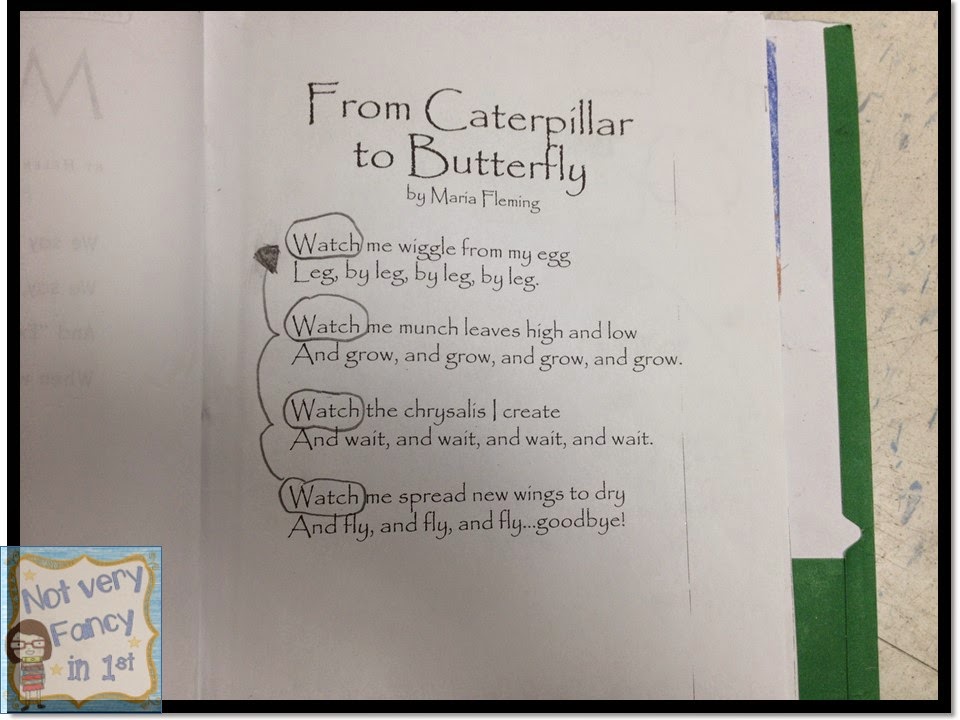 From Caterpillar
to Butterfly
by Maria Fleming
Watch me wiggle from my egg
Leg, by leg, by leg, by leg.
Watch me munch leaves high and low
And grow, and grow, and grow, and grow.
Watch the chrysalis I create
And wait, and wait, and wait, and wait.
Watch me spread new wings to dry
And fly, and fly, and fly...goodbye!
We say
We say,
When
Not very
Fancy
in 1st